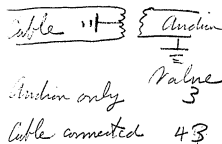 Cable Audion
Value
Audion only 3
Cable connected 43